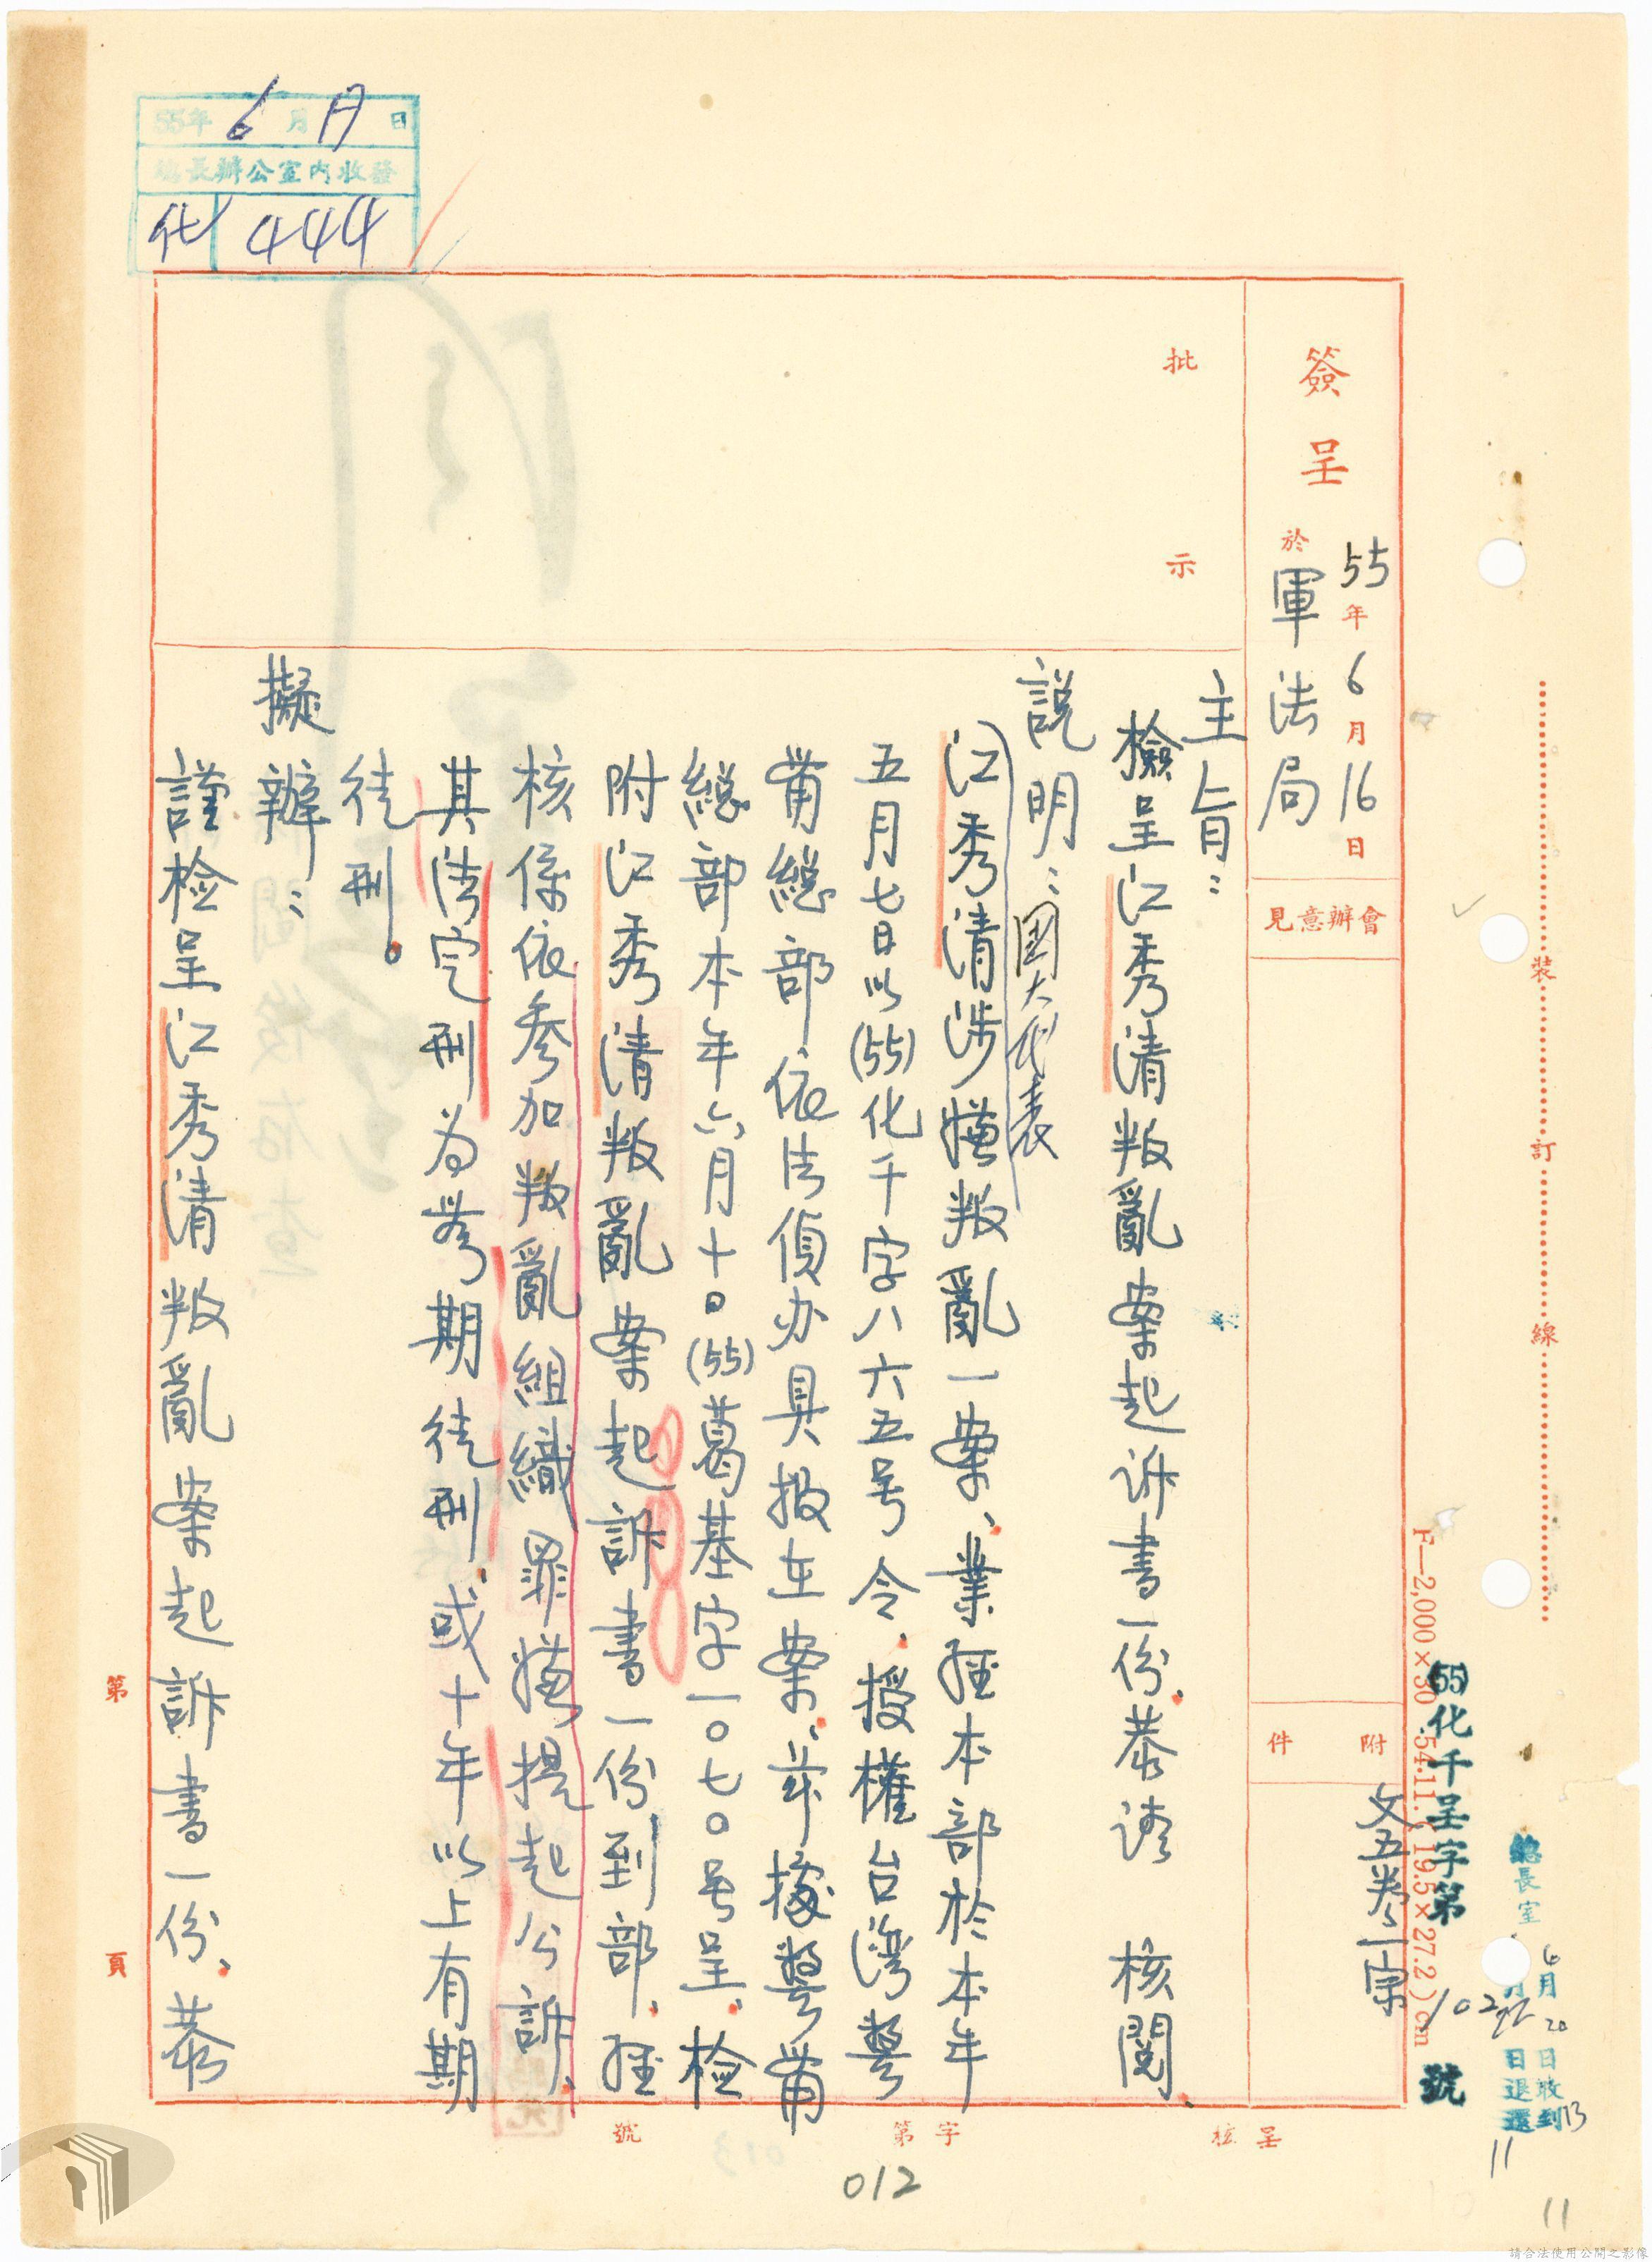 55年6月17日
總長辦公室內收發
化 444
簽呈
55年6月16日
於軍法局
會辦意見
附件
文五卷一宗
批示
主旨：
檢呈江秀清叛亂案起訴書一份、恭請 核閱、
說明：
國大代表
江秀清涉嫌叛亂一案、業經本部於本年
五月七日以(55)化千字八六五号令、授權台灣警
備總部依法偵办具報在案、茲據警備
總部本年六月十日(55)葛基字一〇七〇号呈、检
附江秀清叛亂案起訴書一份到部、經
核係依參加叛亂組織罪嫌提起公訴、
其法定刑为無期徒刑、或十年以上有期
徒刑。
擬辦：
謹检呈江秀清叛亂案起訴書一份、恭
第 頁
呈核 字第 號
012
裝 訂 線
F—2,000×30 54.11.(19.5×27.2)cm
(55)化千呈字第 號
總長室
6月20日收到
月 日退還
13
11
11
請合法使用公開之影像